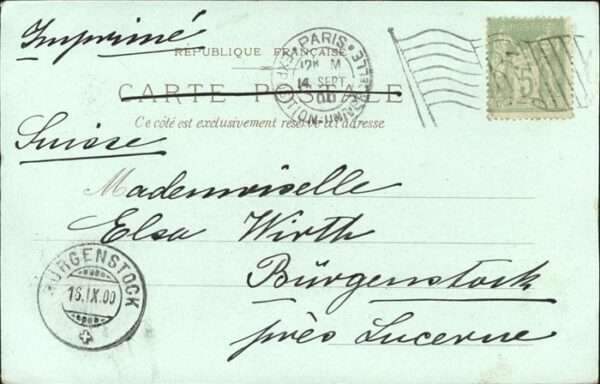 Imprimé
RÉPUBLIQUE FRANÇAISE
CARTE POSTALE
Ce côté est exclusivement réservé à l'adresse
PARIS
EXPOSITION
14 SEPT
00
5
Suisse
Mademoiselle
Elsa Wirth
Bürgenstock
près Lucerne
BÜRGENSTOCK
16.IX.00